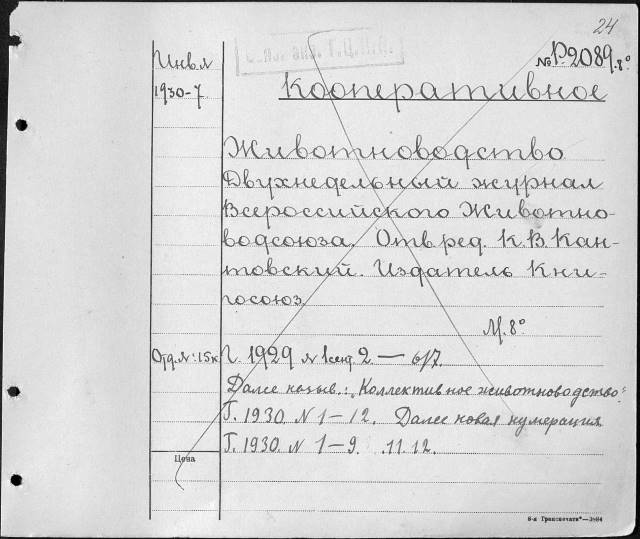 24
№ Р-2089.8°
Инв.л
1930-7
Кооперативное
Животноводство
Двухнедельный журнал
Всероссийского Животно-
водсоюза. Отв. ред. К.В. Кан-
товский. Издатель Кни-
госоюз.
М. 8°
Отд. №: 15к
Г. 1929 № 1 сент. 2. —
Далее назыв.: „Коллективное животноводство"
Г. 1930. N 1–12. Далее новая нумерация
Г. 1930. N 1–9. 11.12.
Цена